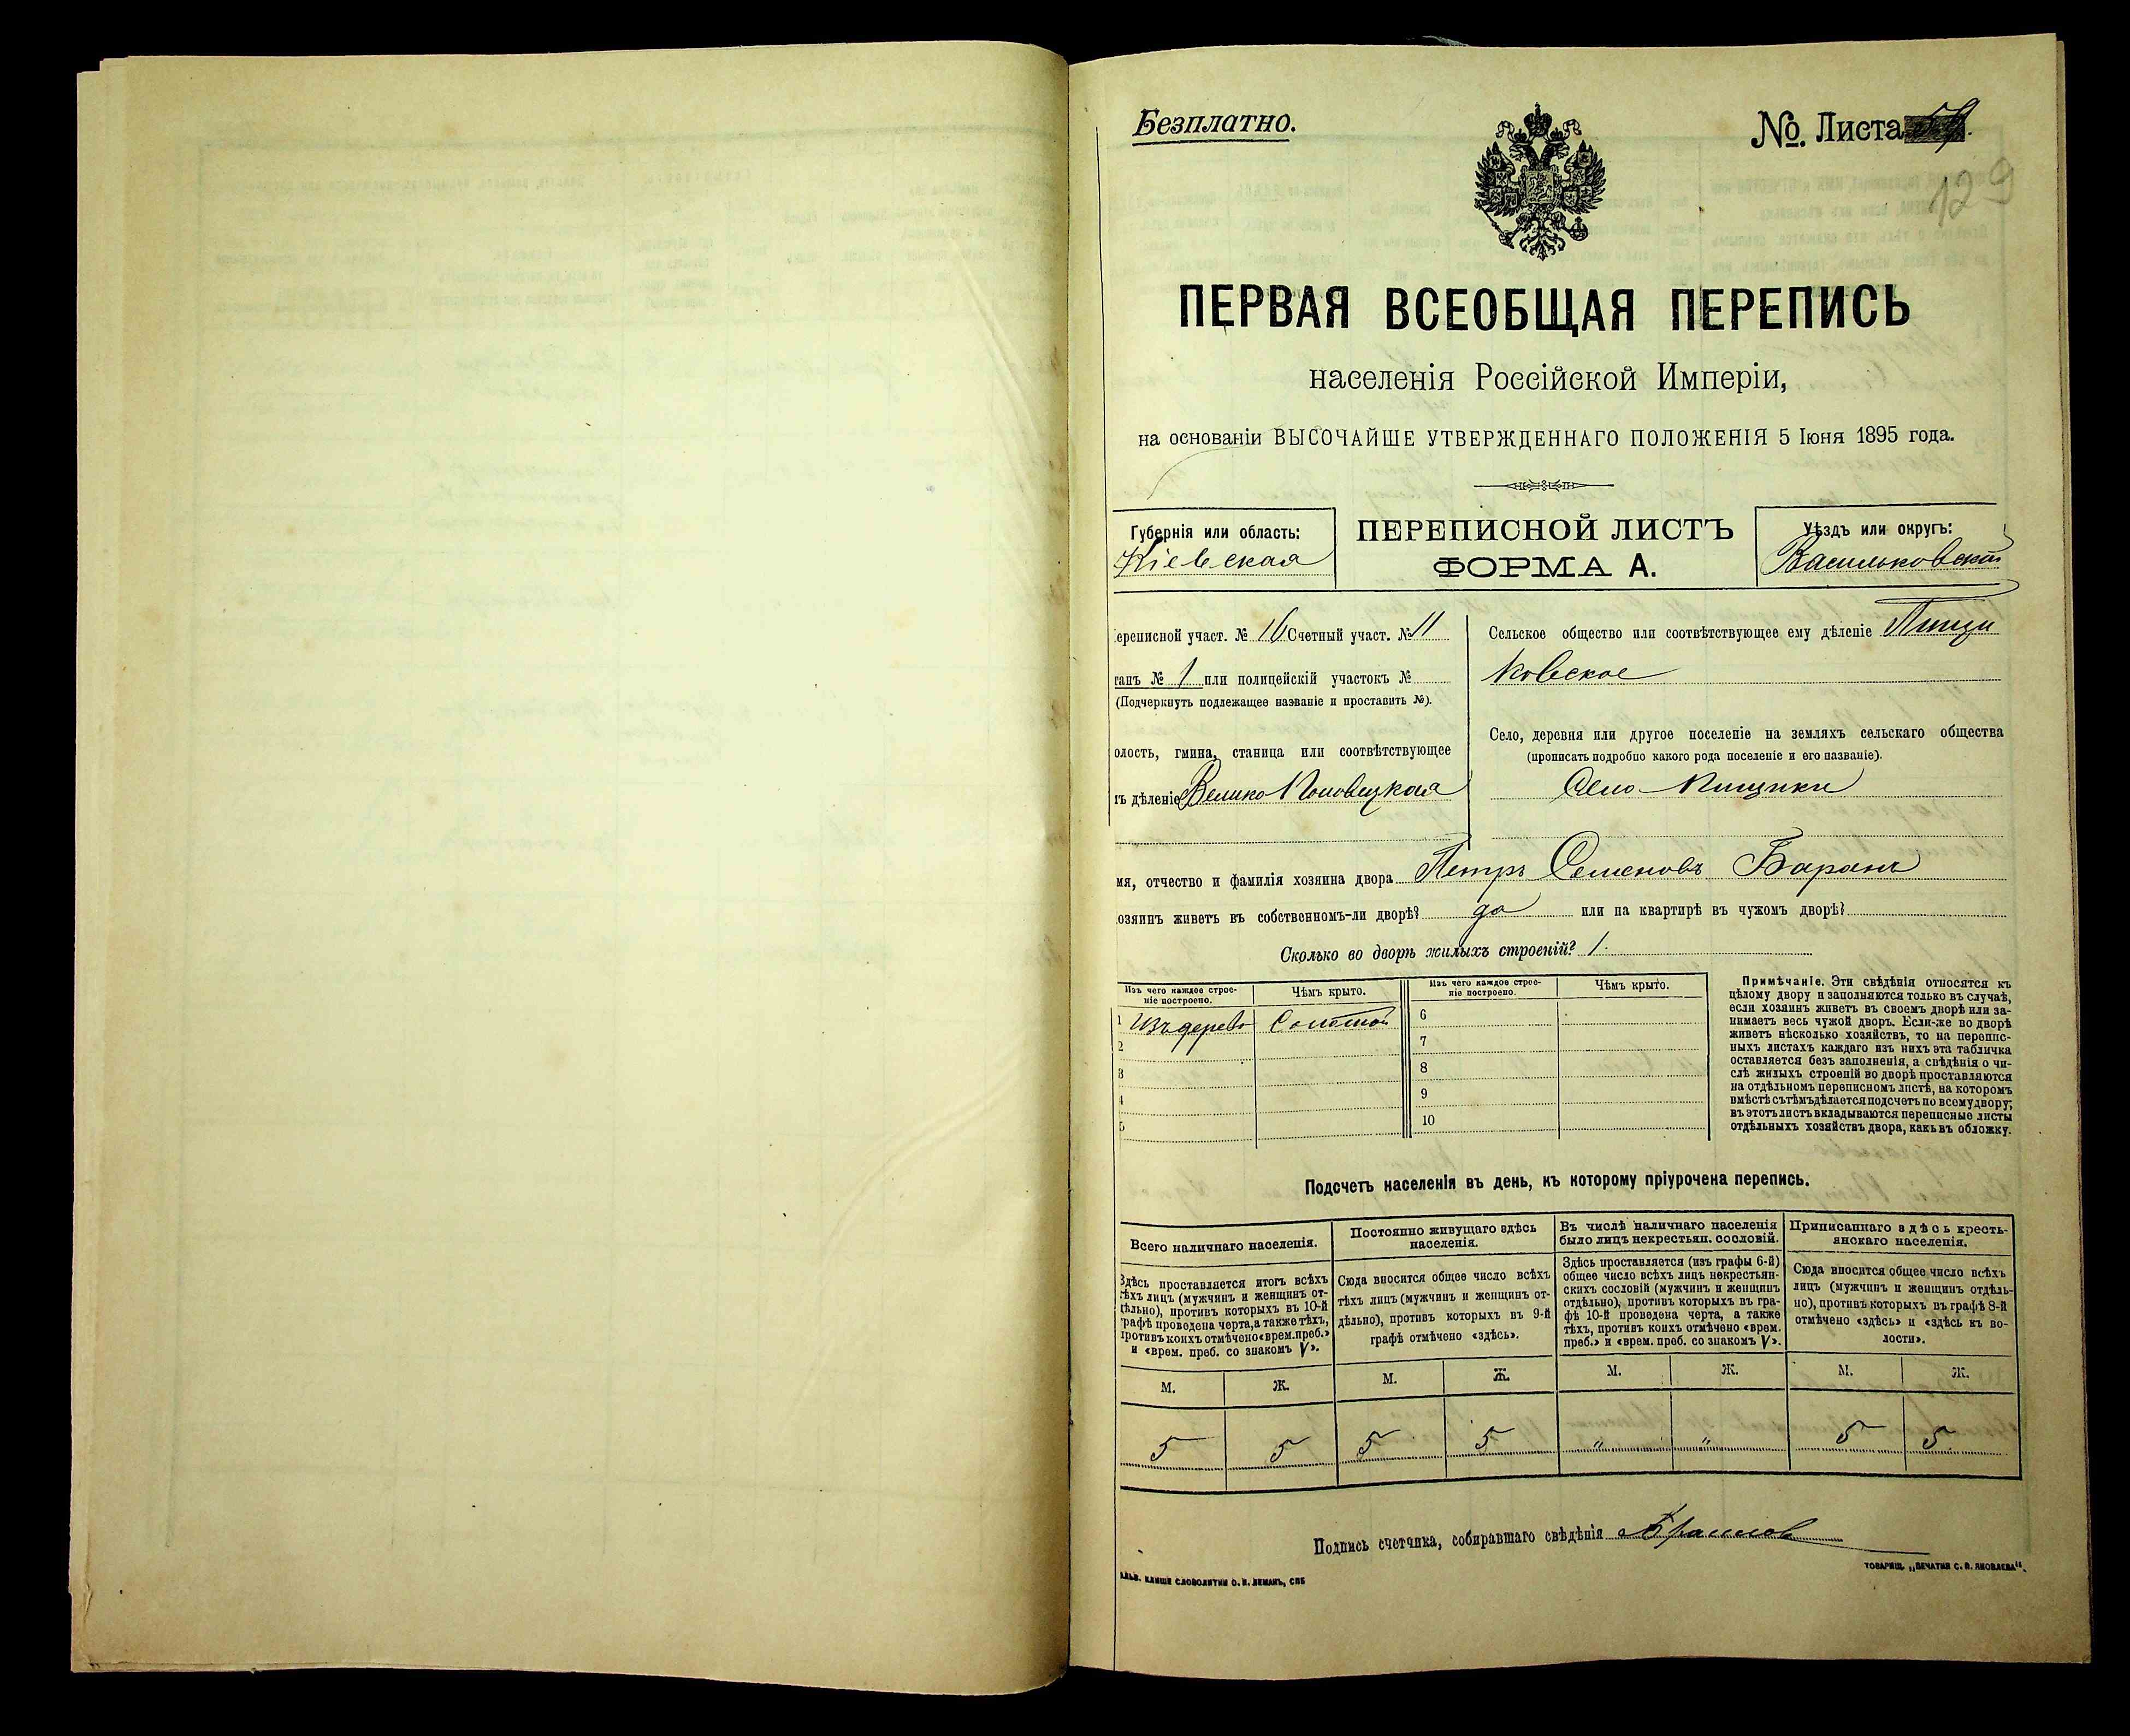 Безплатно.
№. Листа
129
ПЕРВАЯ ВСЕОБЩАЯ ПЕРЕПИСЬ
населенія Россійской Имперіи,
на основаніи ВЫСОЧАЙШЕ УТВЕРЖДЕННАГО ПОЛОЖЕНІЯ 5 Іюня 1895 года.
Губернія или область:
Кіевская
ПЕРЕПИСНОЙ ЛИСТЪ
ФОРМА А.
Уѣздъ или округъ:
Васильковскій
ереписной участ. № 16 Счетный участ. № 11
танъ № 1 или полицейскій участокъ №
(Подчеркнуть подлежащее названіе и проставить №).
олость, гмина, станица или соотвѣтствующее
ъ дѣленіе Велико Половецкая
Сельское общество или соотвѣтствующее ему дѣленіе Пищи
ковское
Село, деревня или другое поселеніе на земляхъ сельскаго общества
(прописать подробно какого рода поселеніе и его названіе).
Село Пищики
мя, отчество и фамилія хозяина двора Петръ Семеновъ Баранъ
озяинъ живетъ въ собственномъ-ли дворѣ? да или на квартирѣ въ чужомъ дворѣ?
Сколько во дворѣ жилыхъ строеній? 1.
Изъ чего каждое строе-
ніе построено.
Чѣмъ крыто.
Изъ чего каждое строе-
ніе построено.
Чѣмъ крыто.
1 Изъ дерево Соломой
2
3
4
5
6
7
8
9
10
Примѣчаніе. Эти свѣдѣнія относятся къ
цѣлому двору и заполняются только въ случаѣ,
если хозяинъ живетъ въ своемъ дворѣ или за-
нимаетъ весь чужой дворъ. Если-же во дворѣ
живетъ нѣсколько хозяйствъ, то на перепис-
ныхъ листахъ каждаго изъ нихъ эта табличка
оставляется безъ заполненія, а свѣдѣнія о чи-
слѣ жилыхъ строеній во дворѣ проставляются
на отдѣльномъ переписномъ листѣ, на которомъ
вмѣстѣ съ тѣмъ дѣлается подсчетъ по всему двору;
въ этотъ листъ вкладываются переписные листы
отдѣльныхъ хозяйствъ двора, какъ въ обложку.
Подсчетъ населенія въ день, къ которому пріурочена перепись.
Всего наличнаго населенія.
Здѣсь проставляется итогъ всѣхъ
тѣхъ лицъ (мужчинъ и женщинъ от-
дѣльно), противъ которыхъ въ 10-й
графѣ проведена черта, а также тѣхъ,
противъ коихъ отмѣчено «врем. преб.»
и «врем. преб. со знакомъ V».
Постоянно живущаго здѣсь
населенія.
Сюда вносится общее число всѣхъ
тѣхъ лицъ (мужчинъ и женщинъ от-
дѣльно), противъ которыхъ въ 9-й
графѣ отмѣчено «здѣсь».
Въ числѣ наличнаго населенія
было лицъ некрестьян. сословій.
Здѣсь проставляется (изъ графы 6-й)
общее число всѣхъ лицъ некрестьян-
скихъ сословій (мужчинъ и женщинъ
отдѣльно), противъ которыхъ въ гра-
фѣ 10-й проведена черта, а также
тѣхъ, противъ коихъ отмѣчено «врем.
преб.» и «врем. преб. со знакомъ V».
Приписаннаго здѣсь кресть-
янскаго населенія.
Сюда вносится общее число всѣхъ
лицъ (мужчинъ и женщинъ отдѣль-
но), противъ которыхъ въ графѣ 8-й
отмѣчено «здѣсь» и «здѣсь къ во-
лости».
М. Ж. М. Ж. М. Ж. М. Ж.
5 5 5 5 " " 5 5
Подпись счетчика, собиравшаго свѣдѣнія
КЛИШЕ СЛОВОЛИТНИ О. И. ЛЕМАНЪ, СПБ
ТОВАРИЩ. „ПЕЧАТНЯ С. П. ЯКОВЛЕВА".